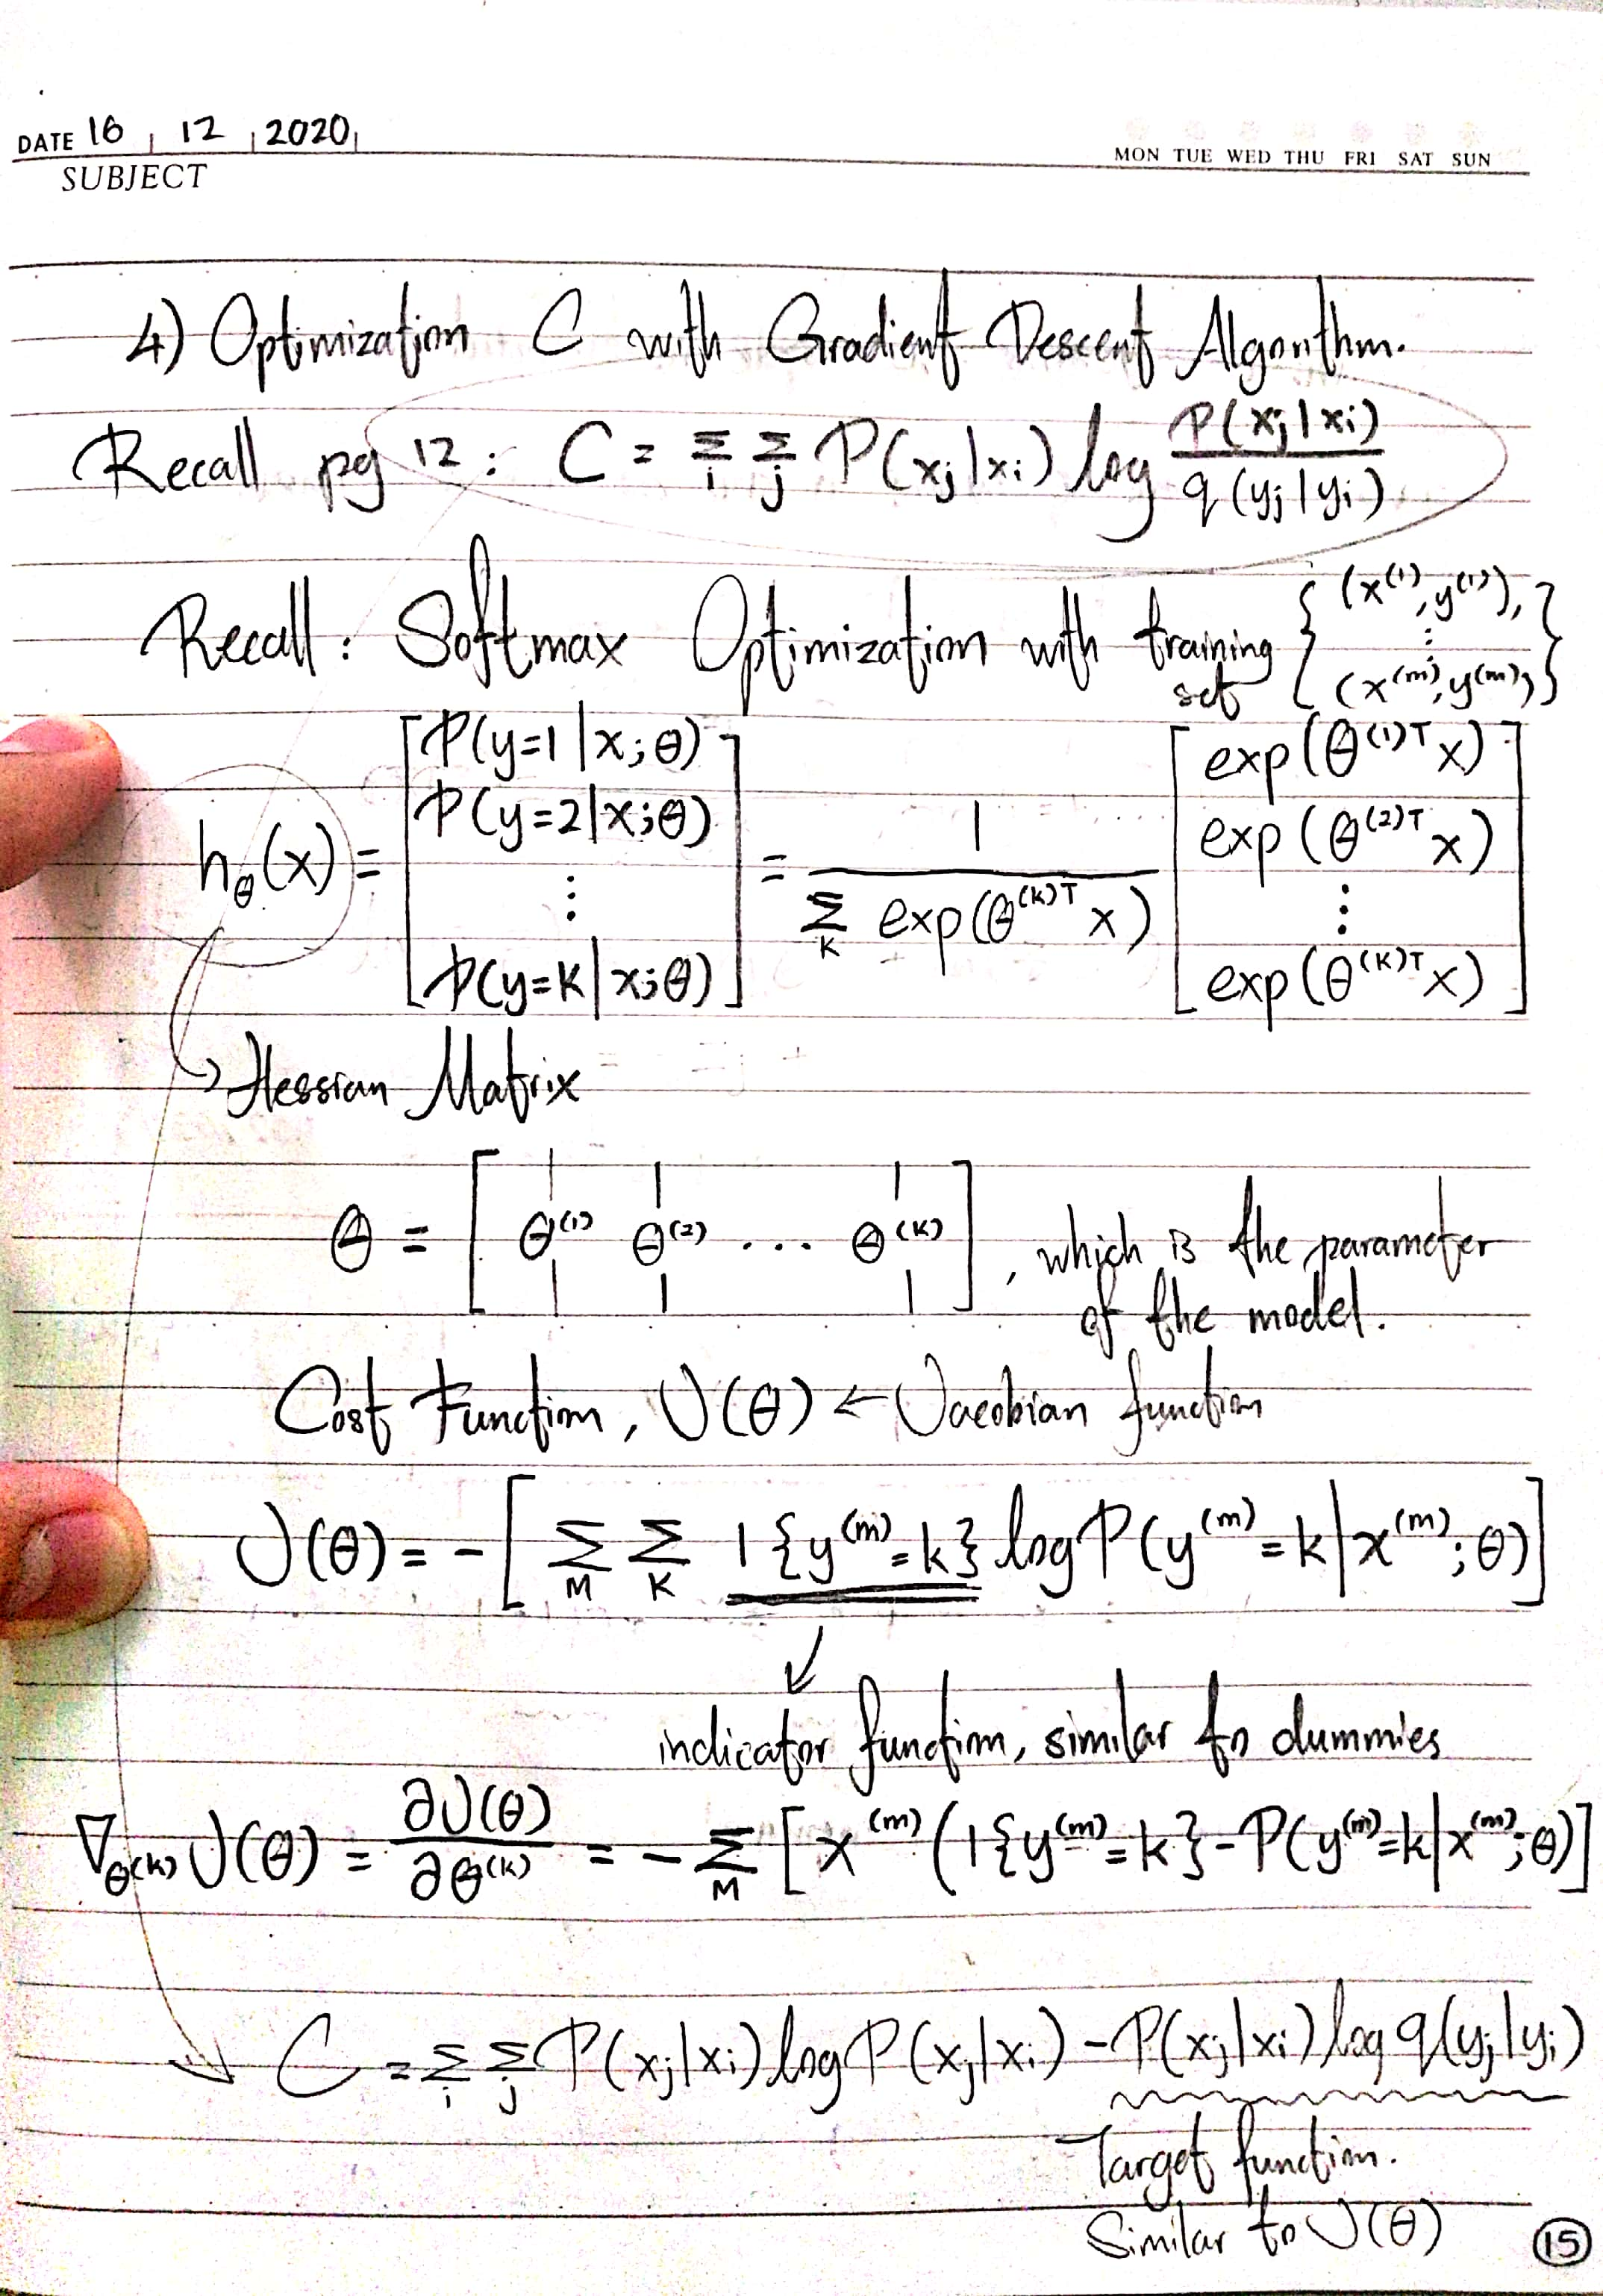 DATE 16 | 12 | 2020
MON TUE WED THU FRI SAT SUN
SUBJECT
4) Optimization C with Gradient Descent Algorithm.
Recall pg 12: C = Σ_i Σ_j P(xj|xi) log P(xj|xi) / q(yj|yi)
Recall: Softmax Optimization with training set { (x^(1), y^(1)), ⋮ (x^(m), y^(m)) }
h_θ(x) = [ P(y=1|x;θ) P(y=2|x;θ) ⋮ P(y=K|x;θ) ] = 1 / Σ_K exp(θ^(K)T x) [ exp(θ^(1)T x) exp(θ^(2)T x) ⋮ exp(θ^(K)T x) ]
→ Hessian Matrix
θ = [ θ^(1) θ^(2) ... θ^(K) ], which is the parameter
of the model.
Cost Function, J(θ) ← Jacobian function
J(θ) = -[ Σ_M Σ_K 1{y^(m)=k} log P(y^(m)=k|x^(m);θ) ]
↓
indicator function, similar to dummies
∇_θ(k) J(θ) = ∂J(θ) / ∂θ^(k) = - Σ_M [ x^(m) (1{y^(m)=k} - P(y^(m)=k|x^(m);θ) ]
C = Σ_i Σ_j P(xj|xi) log P(xj|xi) - P(xj|xi) log q(yj|yi)
Target function.
Similar to J(θ)
15